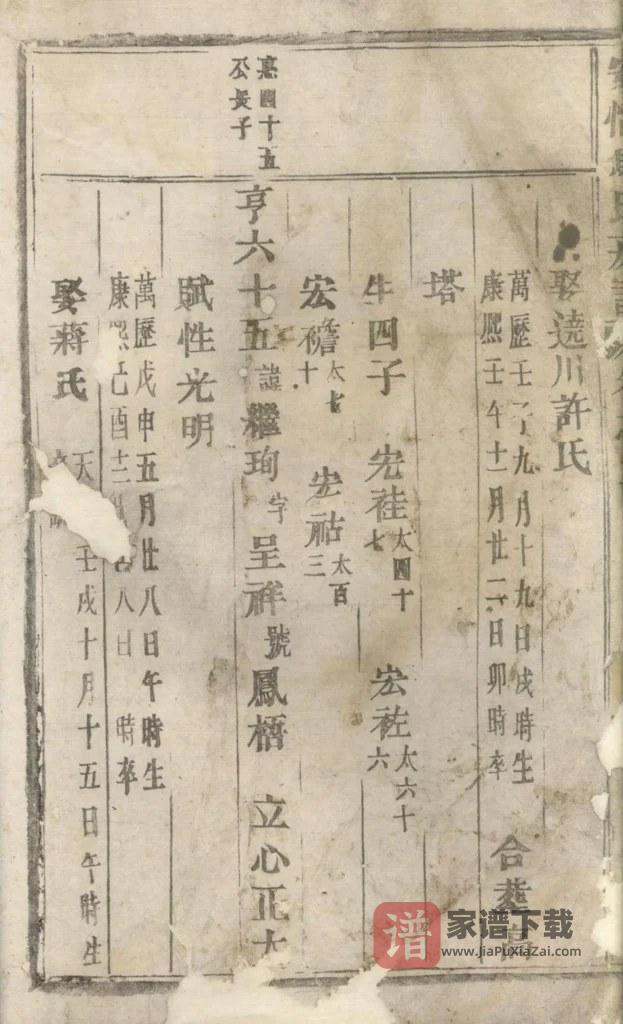 娶遶川許氏
萬歷壬子九月十九日戌時生
康熈壬午十一月廿二日卯時卒
合葬
塔
生四子 宏袿太四十七 宏祐太六十六
宏襜太七十 宏祜太百三
熹四十五公長子
亨六十五諱繼珣字呈祥號鳳梧 立心正大
賦性光明
萬歷戊申五月廿八日午時生
康熈己酉十二八日 時卒
娶蔣氏
天壬戌十月十五日午時生
谱 家谱下载
www.jiaPuXiaZai.com